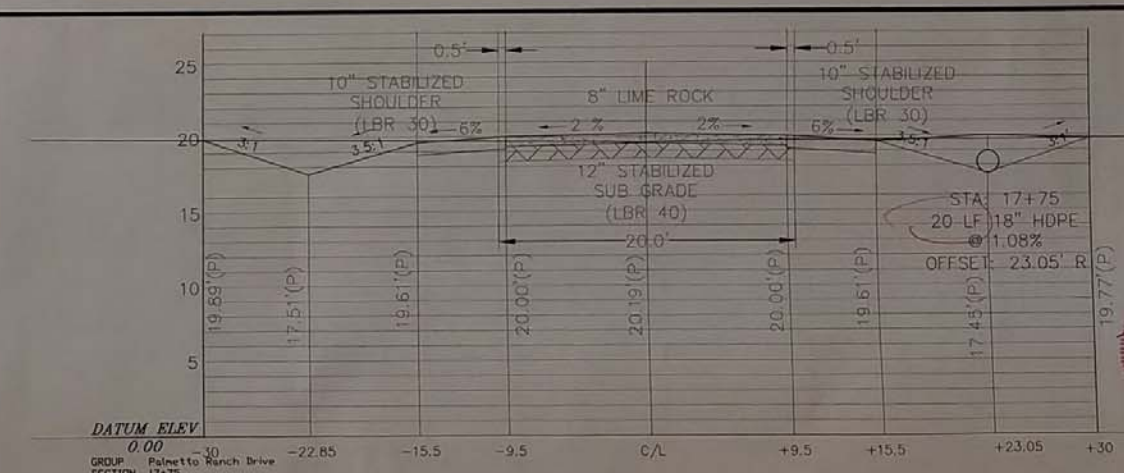 0.5'
0.5'
25
10" STABILIZED
SHOULDER
(LBR 30)
8" LIME ROCK
10" STABILIZED
SHOULDER
(LBR 30)
20
3:1
3.5:1
6%
2 %
2%
6%
3.5:1
3:1
12" STABILIZED
SUB GRADE
(LBR 40)
20.0'
15
STA: 17+75
20 LF 18" HDPE
@ 1.08%
OFFSET: 23.05' R
10
5
19.89'(P)
17.51'(P)
19.61'(P)
20.00'(P)
20.19'(P)
20.00'(P)
19.61'(P)
17.45'(P)
19.77'(P)
DATUM ELEV
0.00
-30
-22.85
-15.5
-9.5
C/L
+9.5
+15.5
+23.05
+30
GROUP Palmetto Ranch Drive
SECTION 17+75